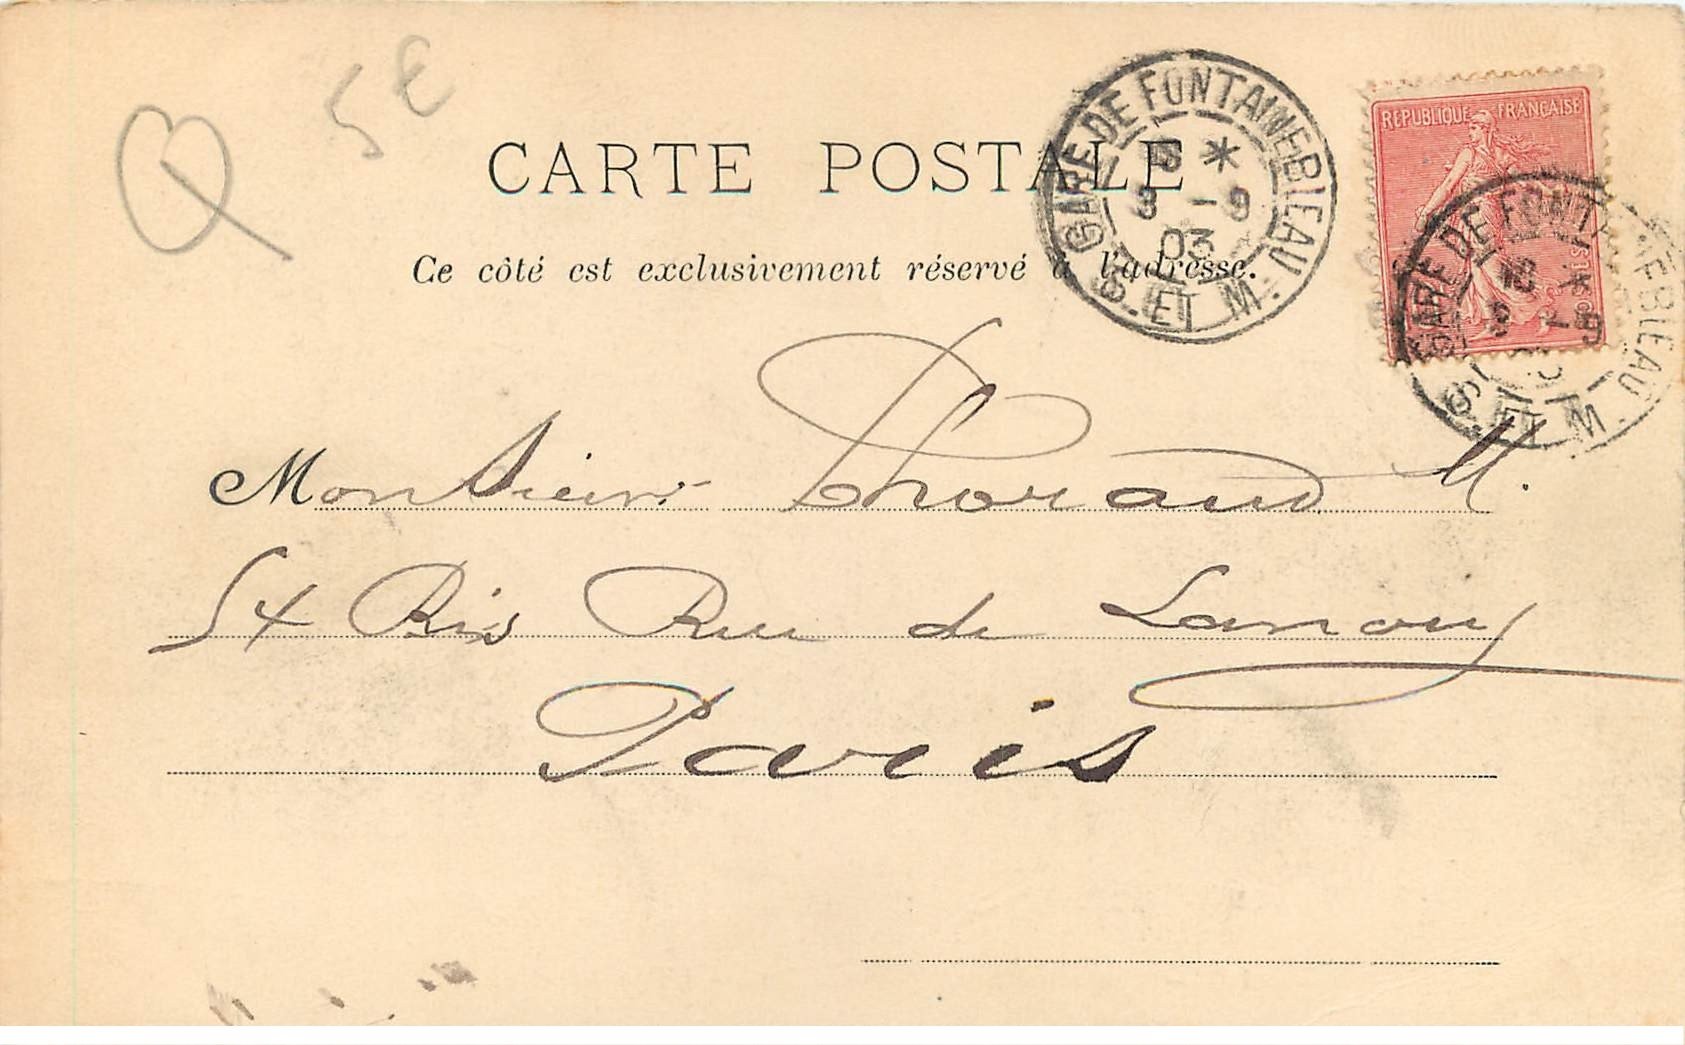 5€
CARTE POSTALE
Ce côté est exclusivement réservé à l'adresse.
GARE DE FONTAINEBLEAU
3 - 9
03
S. ET M.
REPUBLIQUE FRANÇAISE
GARE DE FONTAINEBLEAU
S. ET M.
Monsieur Thoraud M.
54 Bis Rue de Lanoy
Paris